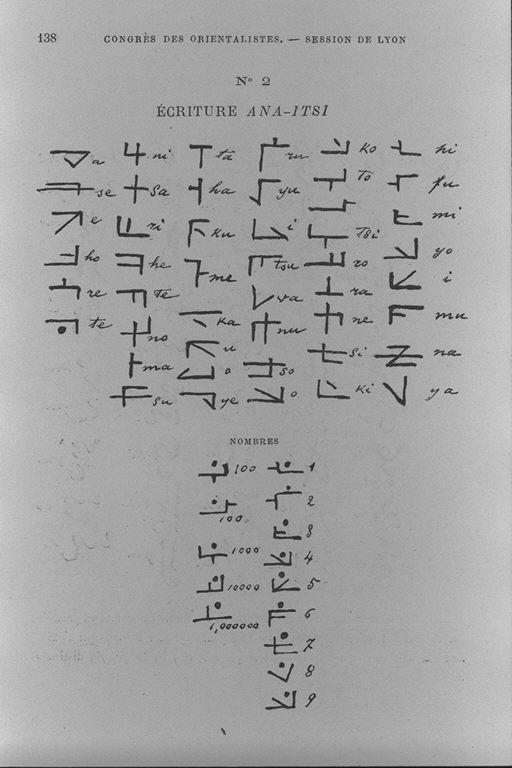 138 CONGRÈS DES ORIENTALISTES. — SESSION DE LYON
N° 2
ÉCRITURE ANA-ITSI
a ni ta ru ko hi
se sa ha yu to fu
e ri ku i tsi mi
ho he me tsu ro yo
re te va ra i
te no ka nu ne mu
ma u so si na
su o o ki ya
ye
NOMBRES
100 1
100 2
3
1000 4
10000 5
1,000000 6
7
8
9